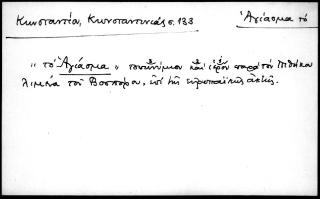 Κωνσταντίου, Κωνσταντινιάς σ. 133
Ἁγίασμα τό
„ τὸ Ἁγίασμα „ τοπωνύμιον καὶ ἱερὸν παρὰ τὸν Πιθήκου
λιμένα τοῦ Βοσπόρου, ἐπὶ τῆς εὐρωπαϊκῆς ἀκτῆς.